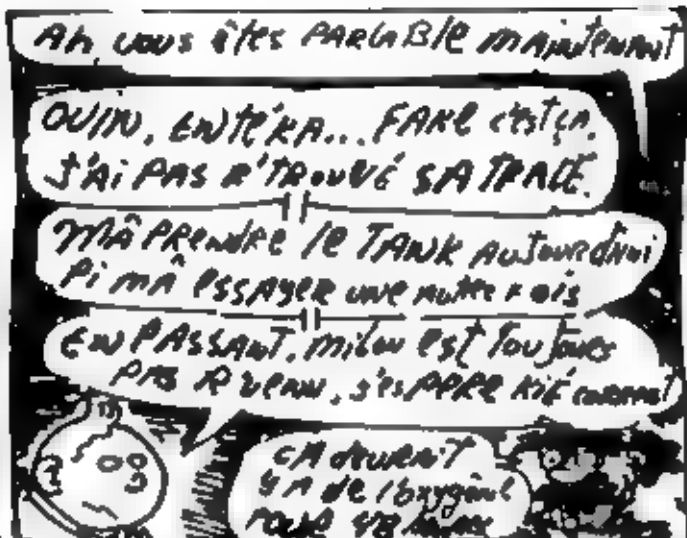 Ah, vous êtes PARLABle maintenant
OUIN, ENTÉ'KA... FAKE c'est ça,
J'Ai PAS R'TROUVÉ SA TRACE.
MÂ PRENdRE le TANK AUJOURd'hui
Pi MÂ ESSAYER UNE AUTRE FOIS
EN PASSANT, milou est toujours
PAS R'VENU, J'esPERE K'iÉ
ÇA
Y A de l'oxygène
POUR 48